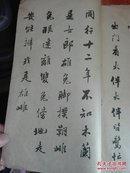 出門看火伴火伴皆驚忙
同行十二年不知木蘭
是女郎雄兔脚撲朔雌
兔眼迷離雙兔傍地走
安能辨我是雄雌